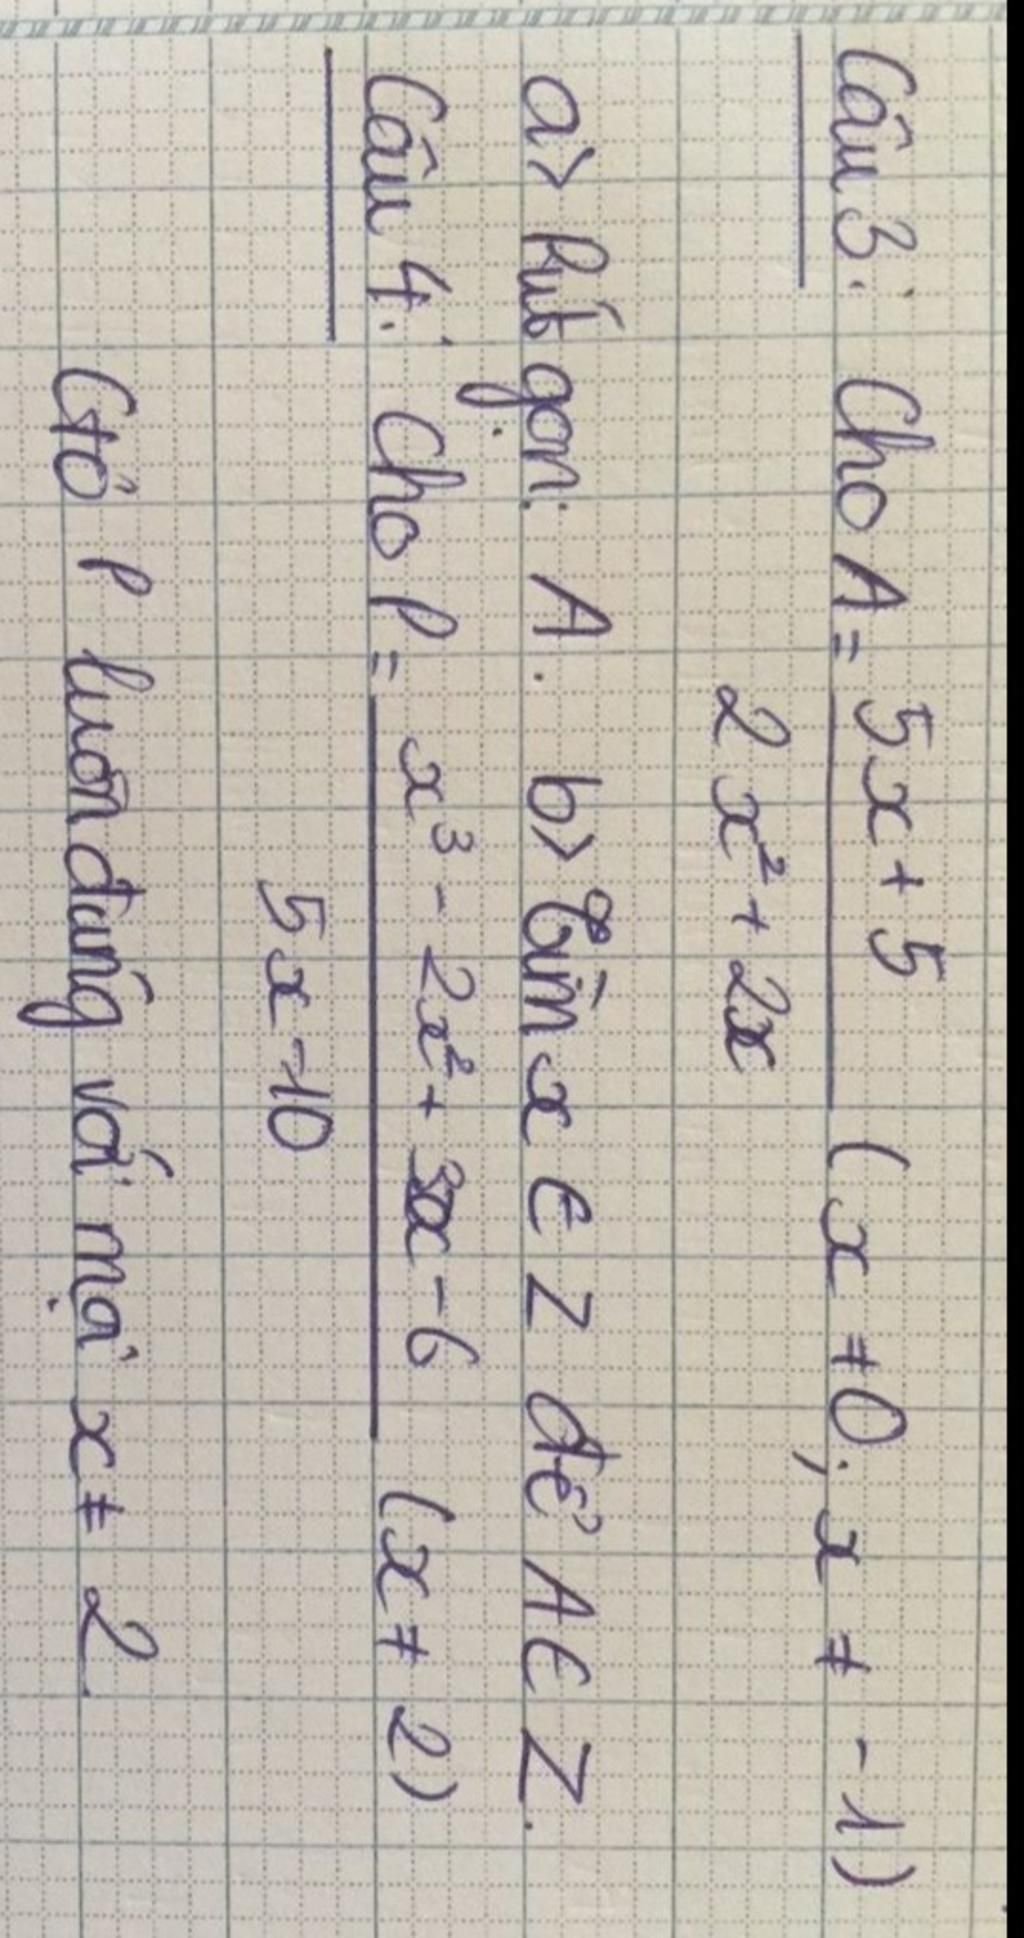 Câu 3: Cho A = 5x + 5 / 2x² + 2x (x ≠ 0; x ≠ -1)
a> Rút gọn: A. b> Tìm x ∈ Z để A ∈ Z.
Câu 4: Cho P = x³ - 2x² + 3x - 6 / 5x - 10 (x ≠ 2)
Ctỏ P luôn dương với mọi x ≠ 2